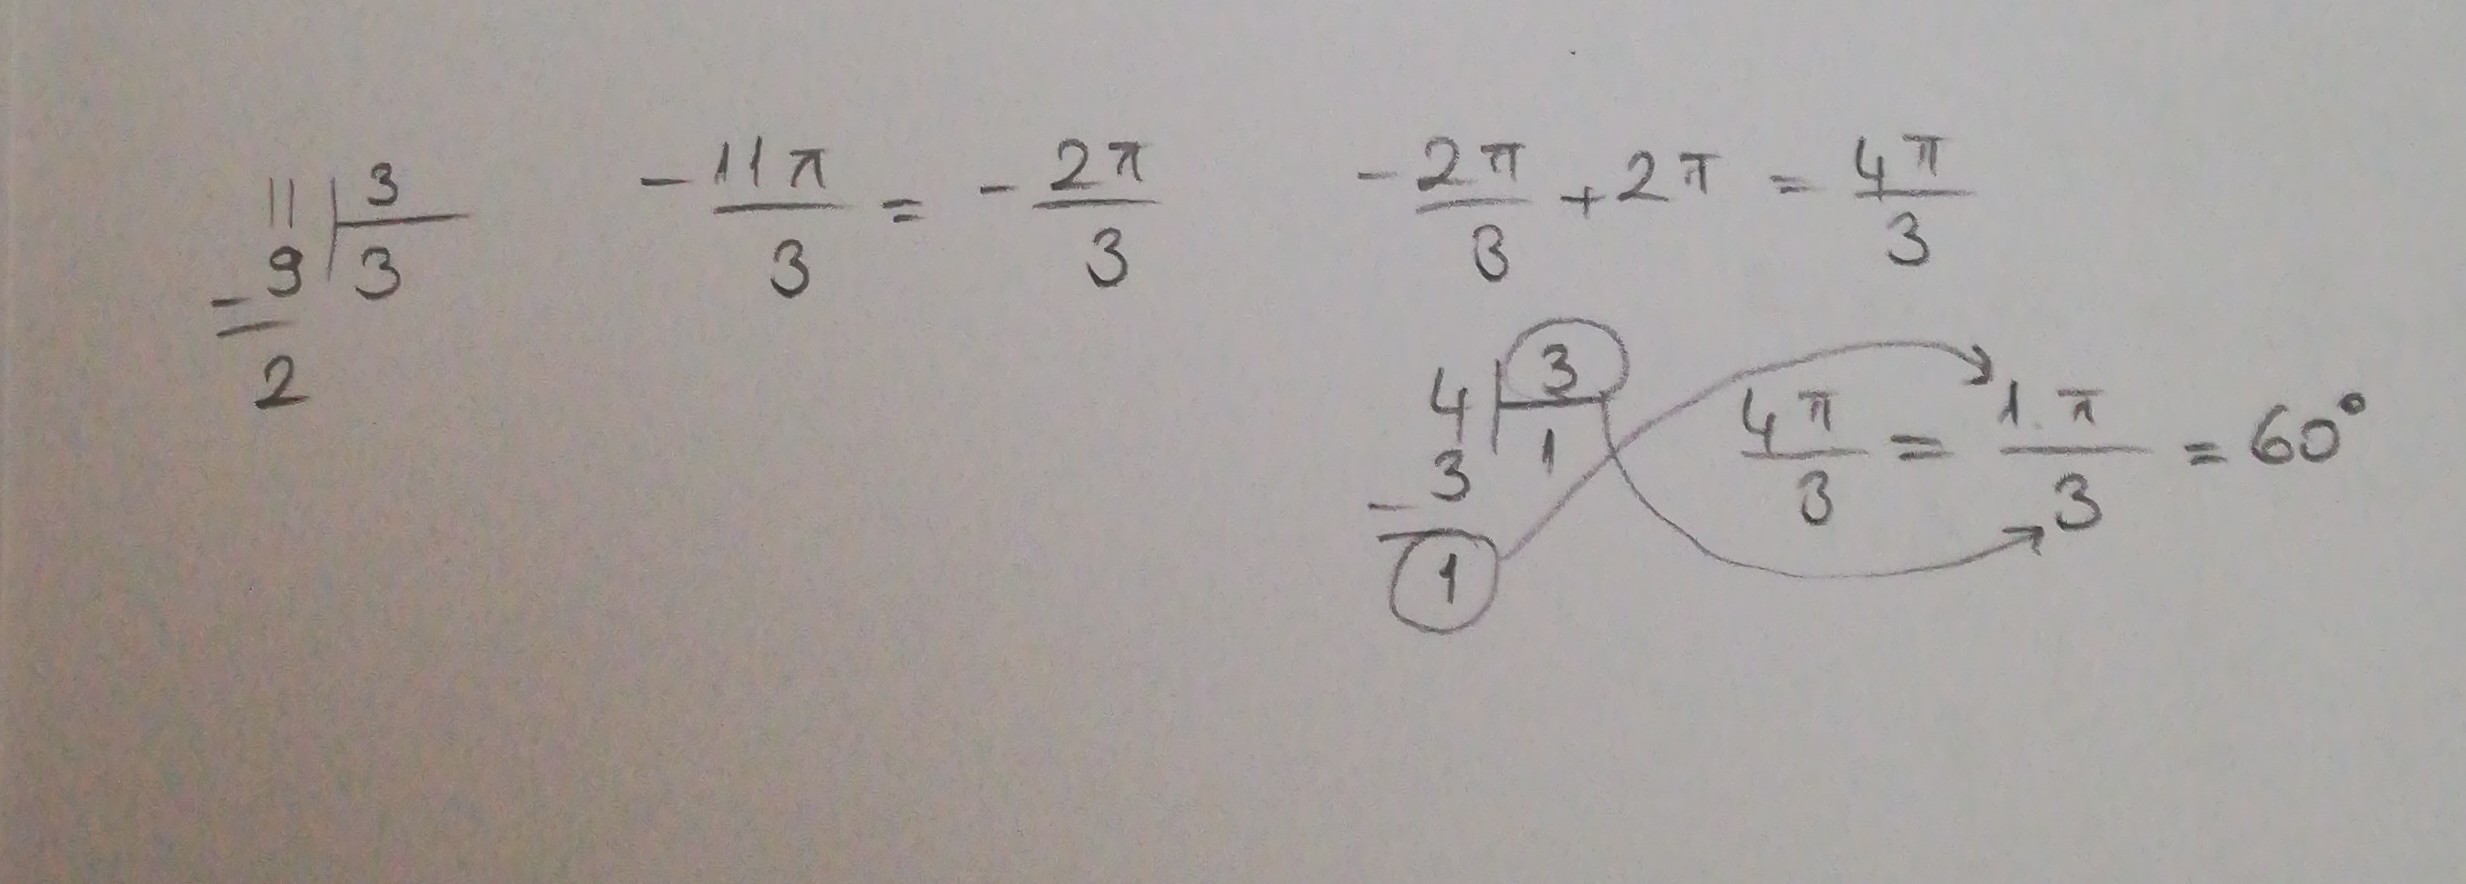 11 | 3
- 9 | 3
2
- 11π/3 = - 2π/3
- 2π/3 + 2π = 4π/3
4 | 3
- 3 | 1
1
4π/3 = 1.π/3 = 60°